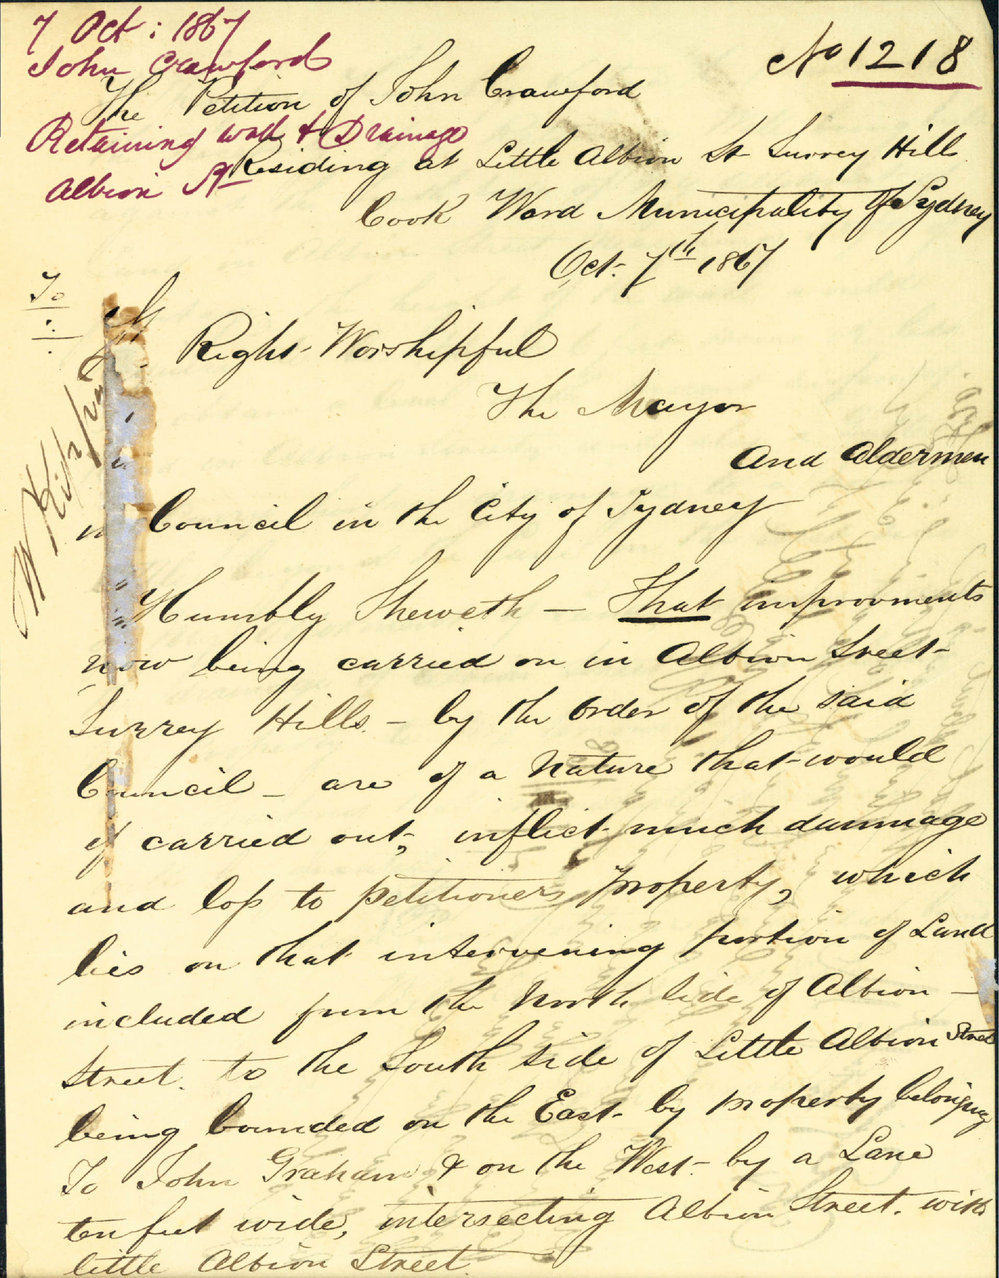 7 Oct: 1867
John Crawford
No 1218
The Petition of John Crawford
Retaining wall & Drainage
Residing at Little Albion St Surrey Hills
Albion St
Cook Ward Municipality of Sydney
Oct. 7th 1867
To
Right Worshipful
The Mayor
And Aldermen
in Council in the City of Sydney
Humbly Sheweth — That improvments
now being carried on in Albion Sreet
Surrey Hills – by the Order of the said
Council – are of a Nature that would
if carried out, inflict much dammage
and loss to Petitioners Property, which
lies on that intervening portion of Land
included from the North Side of Albion –
Street. to the South side of Little Albion Street
being bounded on the East by property belonging
To John Graham & on the West – by a Lane
ten feet wide, intersecting Albion Street. with
little Albion Street.